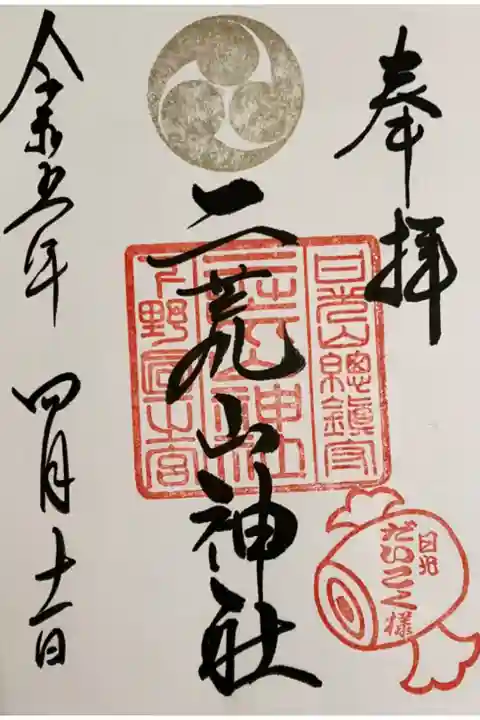 奉拝
日光山總鎮守
二荒山神社
下野國一之宮
二荒山神社
日光
だいこく様
令和五年 四月十一日